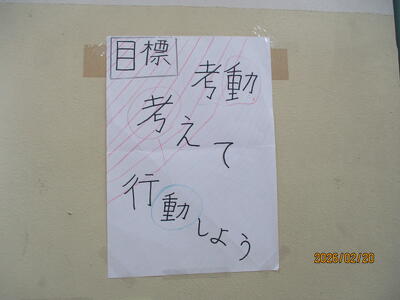 目標
考動
考えて
行動しよう
2026/02/20